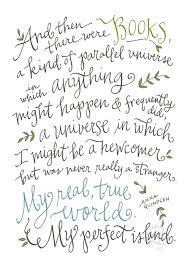 And then
there were BOOKS,
a kind of parallel universe
in which anything
might happen & frequently
did,
a universe in which
I might be a newcomer
but was never really a stranger.
My real, true
world.
My perfect island.
ANNA
QUINDLEN